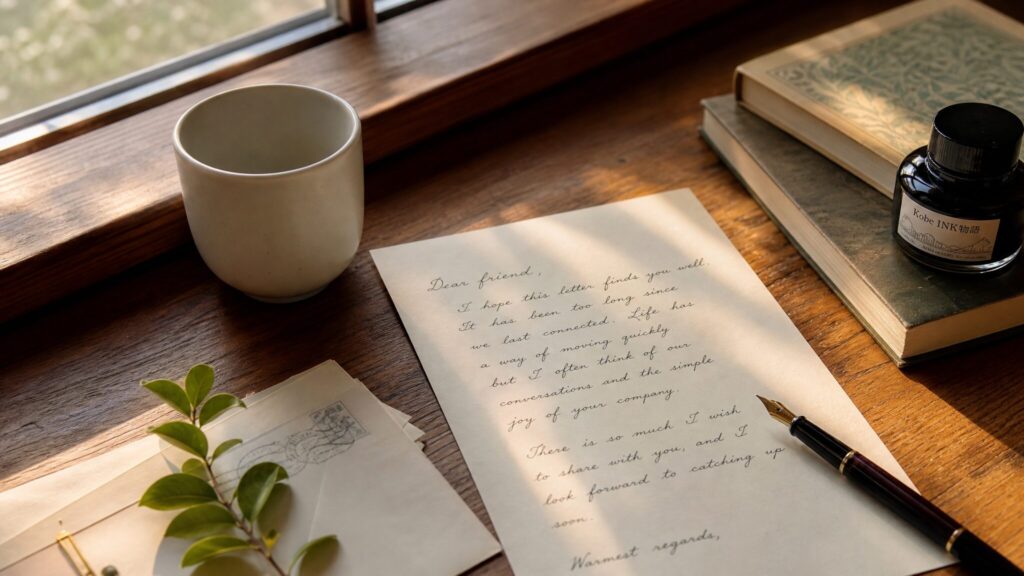 Dear friend,
I hope this letter finds you well.
It has been too long since
we last connected. Life has
a way of moving quickly
but I often think of our
conversations and the simple
joy of your company.
There is so much I wish
to share with you, and I
look forward to catching up
soon.
Warmest regards,
Kobe INK物語